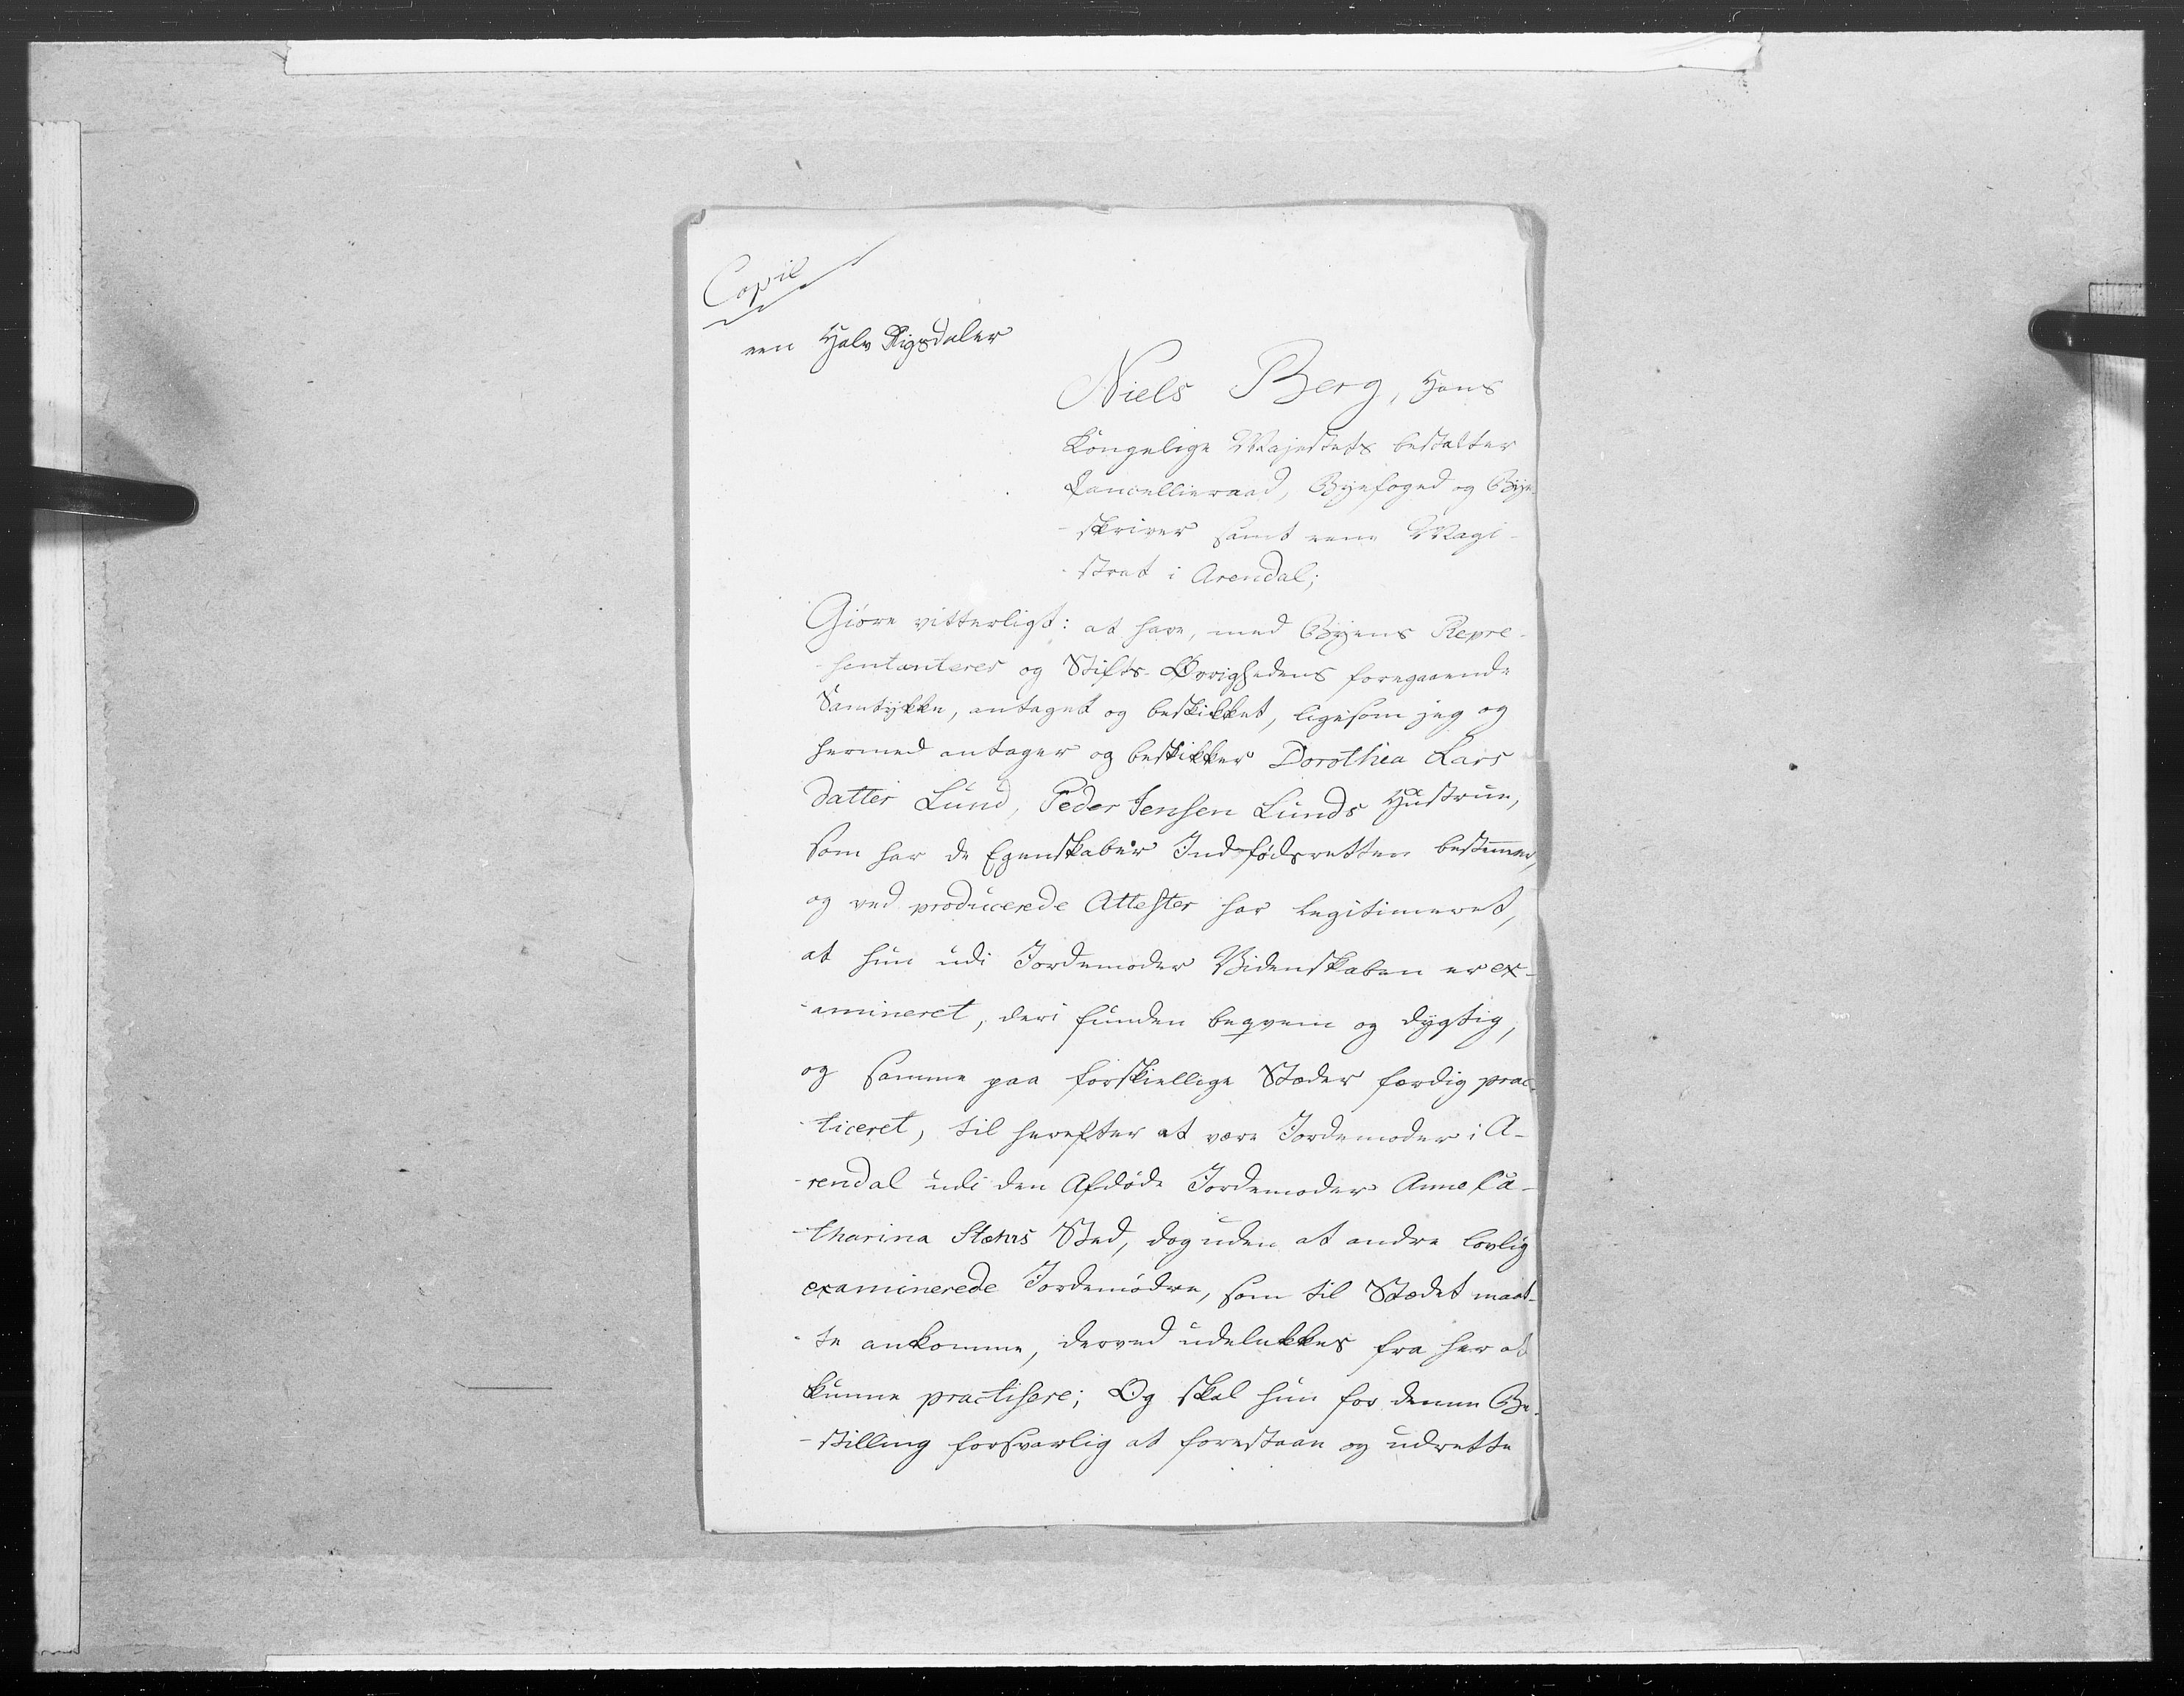 Copie
een Halv Rigsdaler
Niels Berg, Hans
Kongelige Majestets bestalter
Cancellieraad, Byefoged og Bye-
-skriver samt eene Magi-
-strat i Arendal;
Giøre vitterligt: at have, med Byens Repre-
-sentanteres og Stifts-Øvrighedens foregaaende
Samtykke, antaget og beskikket, ligesom jeg og
hermed antager og beskikker Dorothea Lars
datter Lund, Peder Jensen Lunds Hustrue,
som har de Egenskaber Indfødsretten bestemmer,
og ved producerede Attester har legitimeret,
at hun udi Jordemoder Videnskaben er ex-
-amineret, deri funden beqvem og dygtig,
og samme paa forskiellige Stæder færdig prac-
-ticeret, til herefter at være Jordemoder i A-
-rendal udi den Afdøde Jordemoder Anne Ca-
-tharina Stæhrs Sted, dog uden at andre lovlig
examinerede Jordemødre, som til Stædet maat-
-te ankomme, derved udelukkes fra her at
kunne practisere; Og skal hun for denne Be-
-stilling forsvarlig at forestaae og udrette